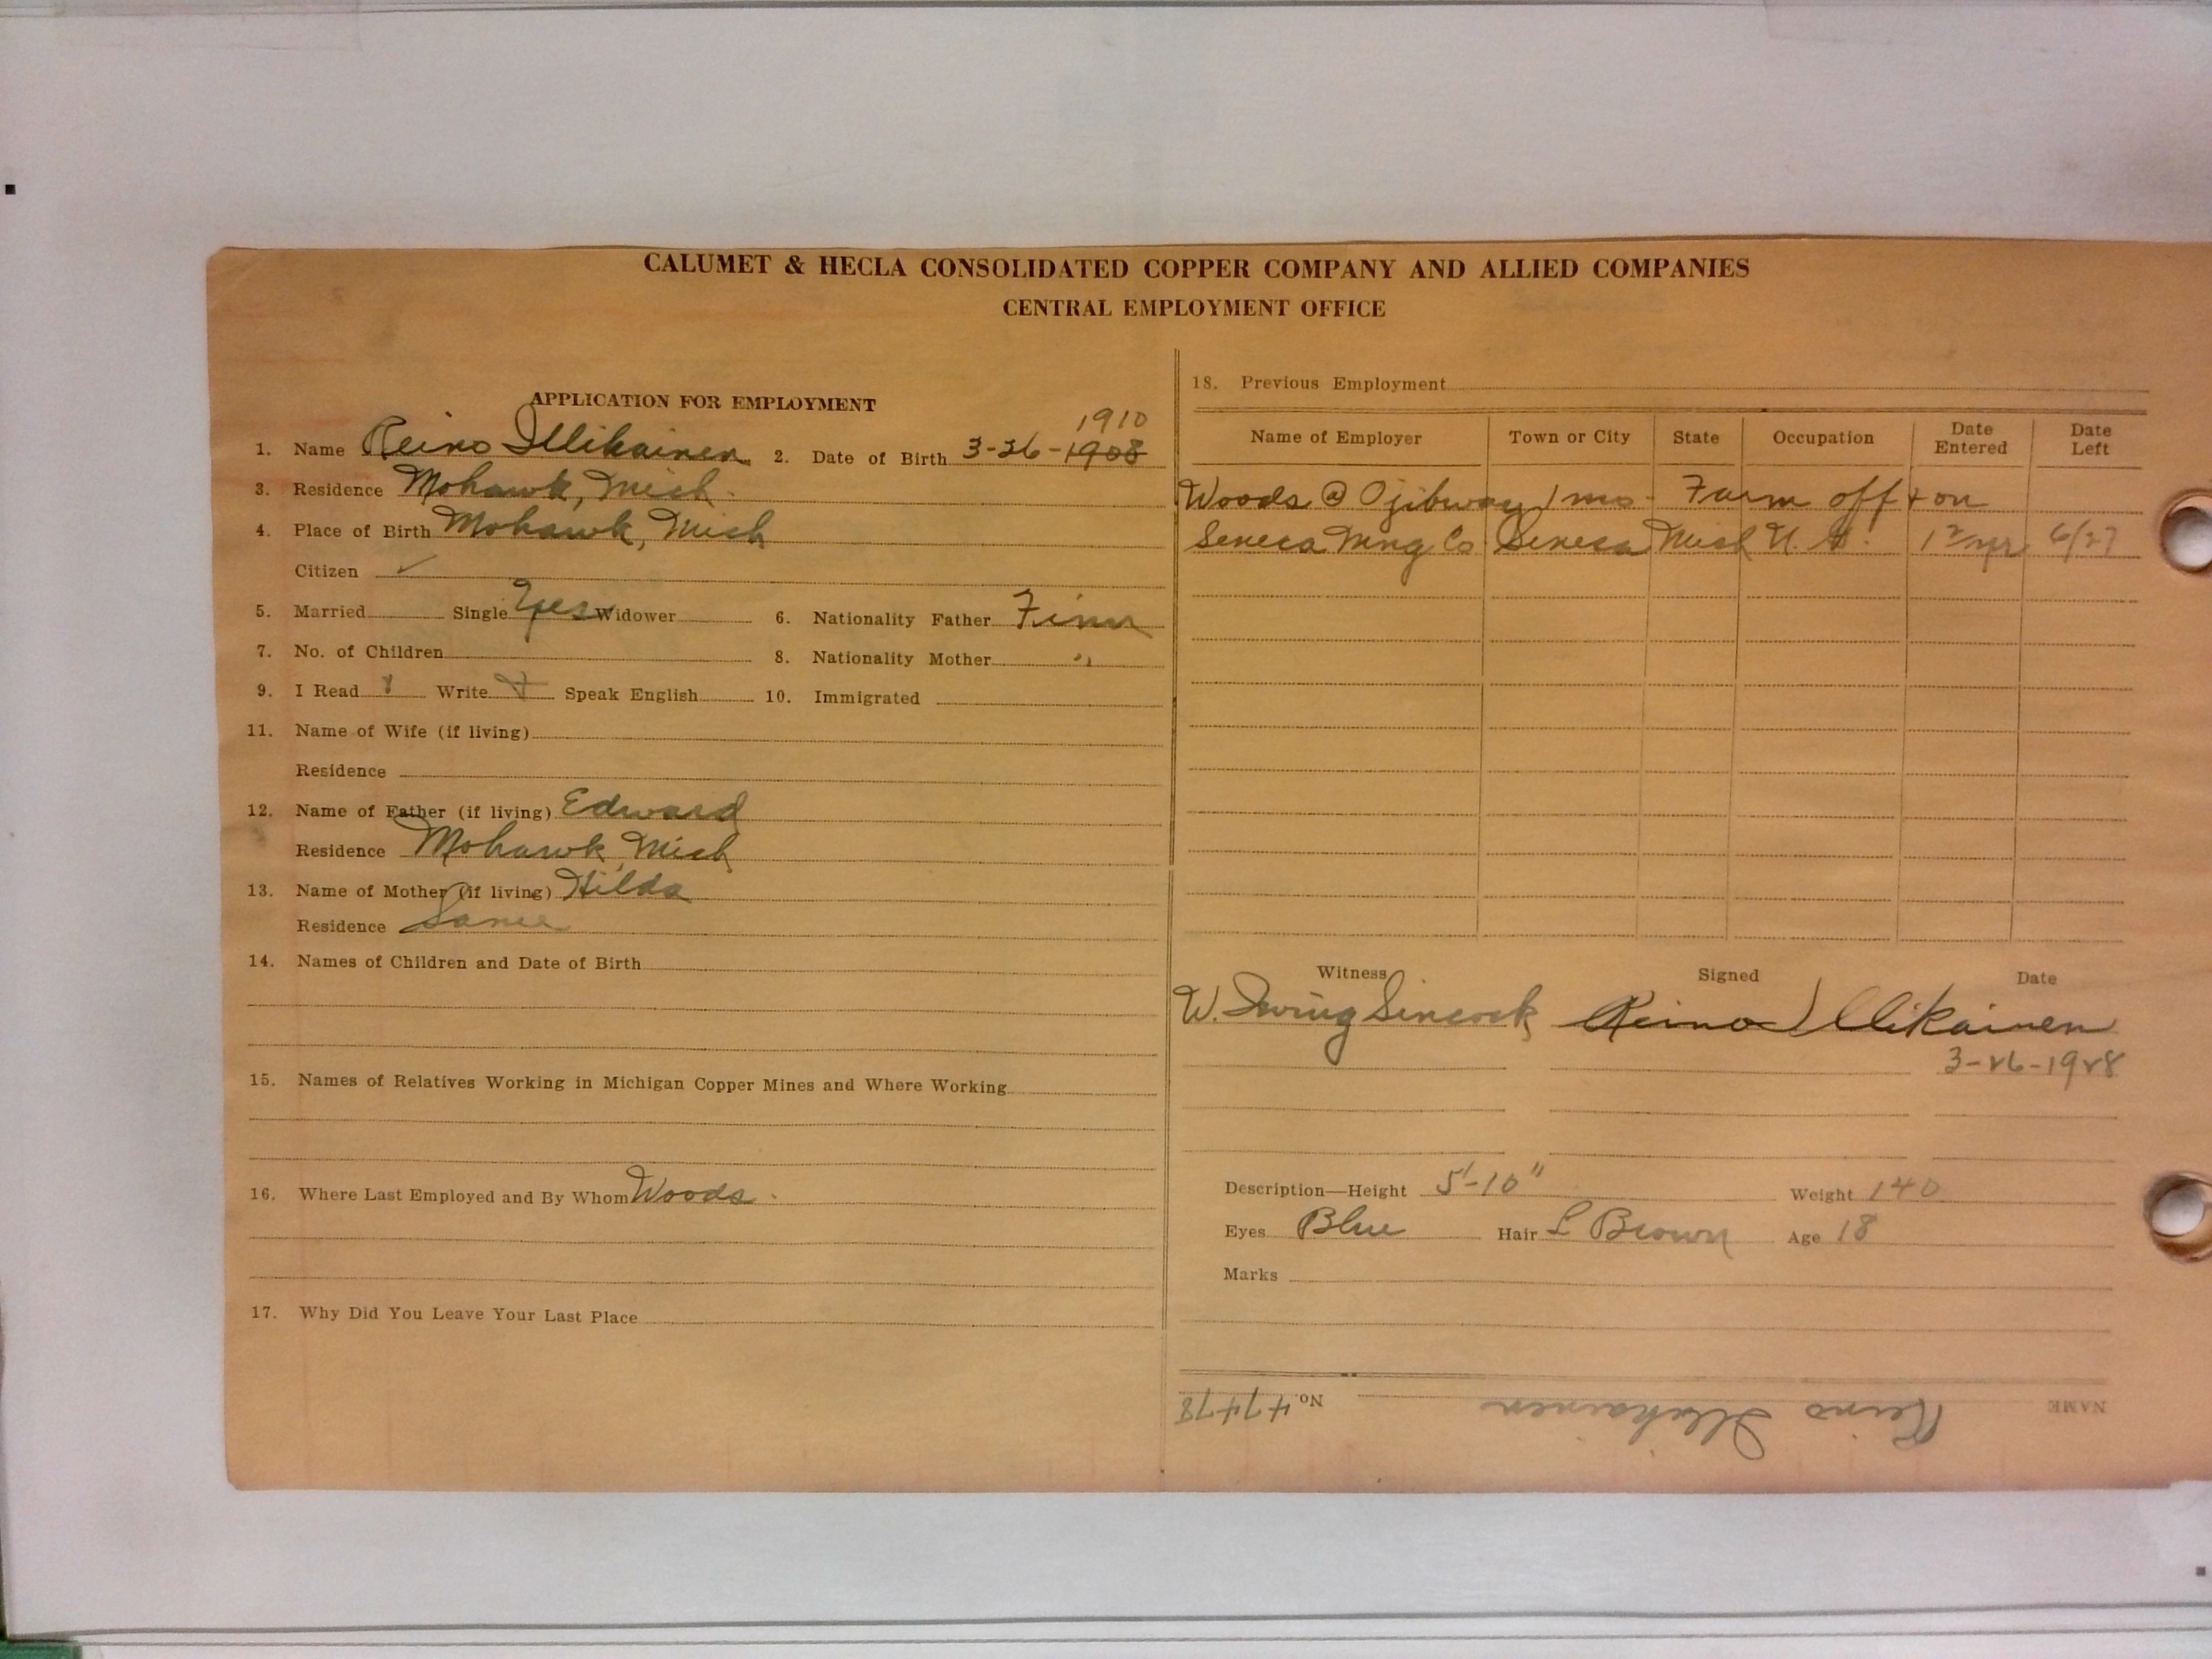 CALUMET & HECLA CONSOLIDATED COPPER COMPANY AND ALLIED COMPANIES
CENTRAL EMPLOYMENT OFFICE
APPLICATION FOR EMPLOYMENT
1910
1. Name Reino Illikainen 2. Date of Birth 3-26-1908
3. Residence Mohawk, Mich.
4. Place of Birth Mohawk, Mich
Citizen ✓
5. Married Single Yes Widower 6. Nationality Father Finn
7. No. of Children 8. Nationality Mother "
9. I Read Write Speak English 10. Immigrated
11. Name of Wife (if living)
Residence
12. Name of Father (if living) Edward
Residence Mohawk, Mich
13. Name of Mother (if living) Hilda
Residence Same
14. Names of Children and Date of Birth
15. Names of Relatives Working in Michigan Copper Mines and Where Working
16. Where Last Employed and By Whom Woods.
17. Why Did You Leave Your Last Place
18. Previous Employment
Name of Employer Town or City State Occupation Date Entered Date Left
Woods @ Ojibway 1 mo - Farm off + on
Seneca Mng Co Seneca Mich U. G. 6/27
Witness Signed Date
W. Irving Sincock Reino Illikainen
3-26-1928
Description—Height 5'-10" Weight 140
Eyes Blue Hair L Brown Age 18
Marks
NAME Reino Illikainen No. 47478